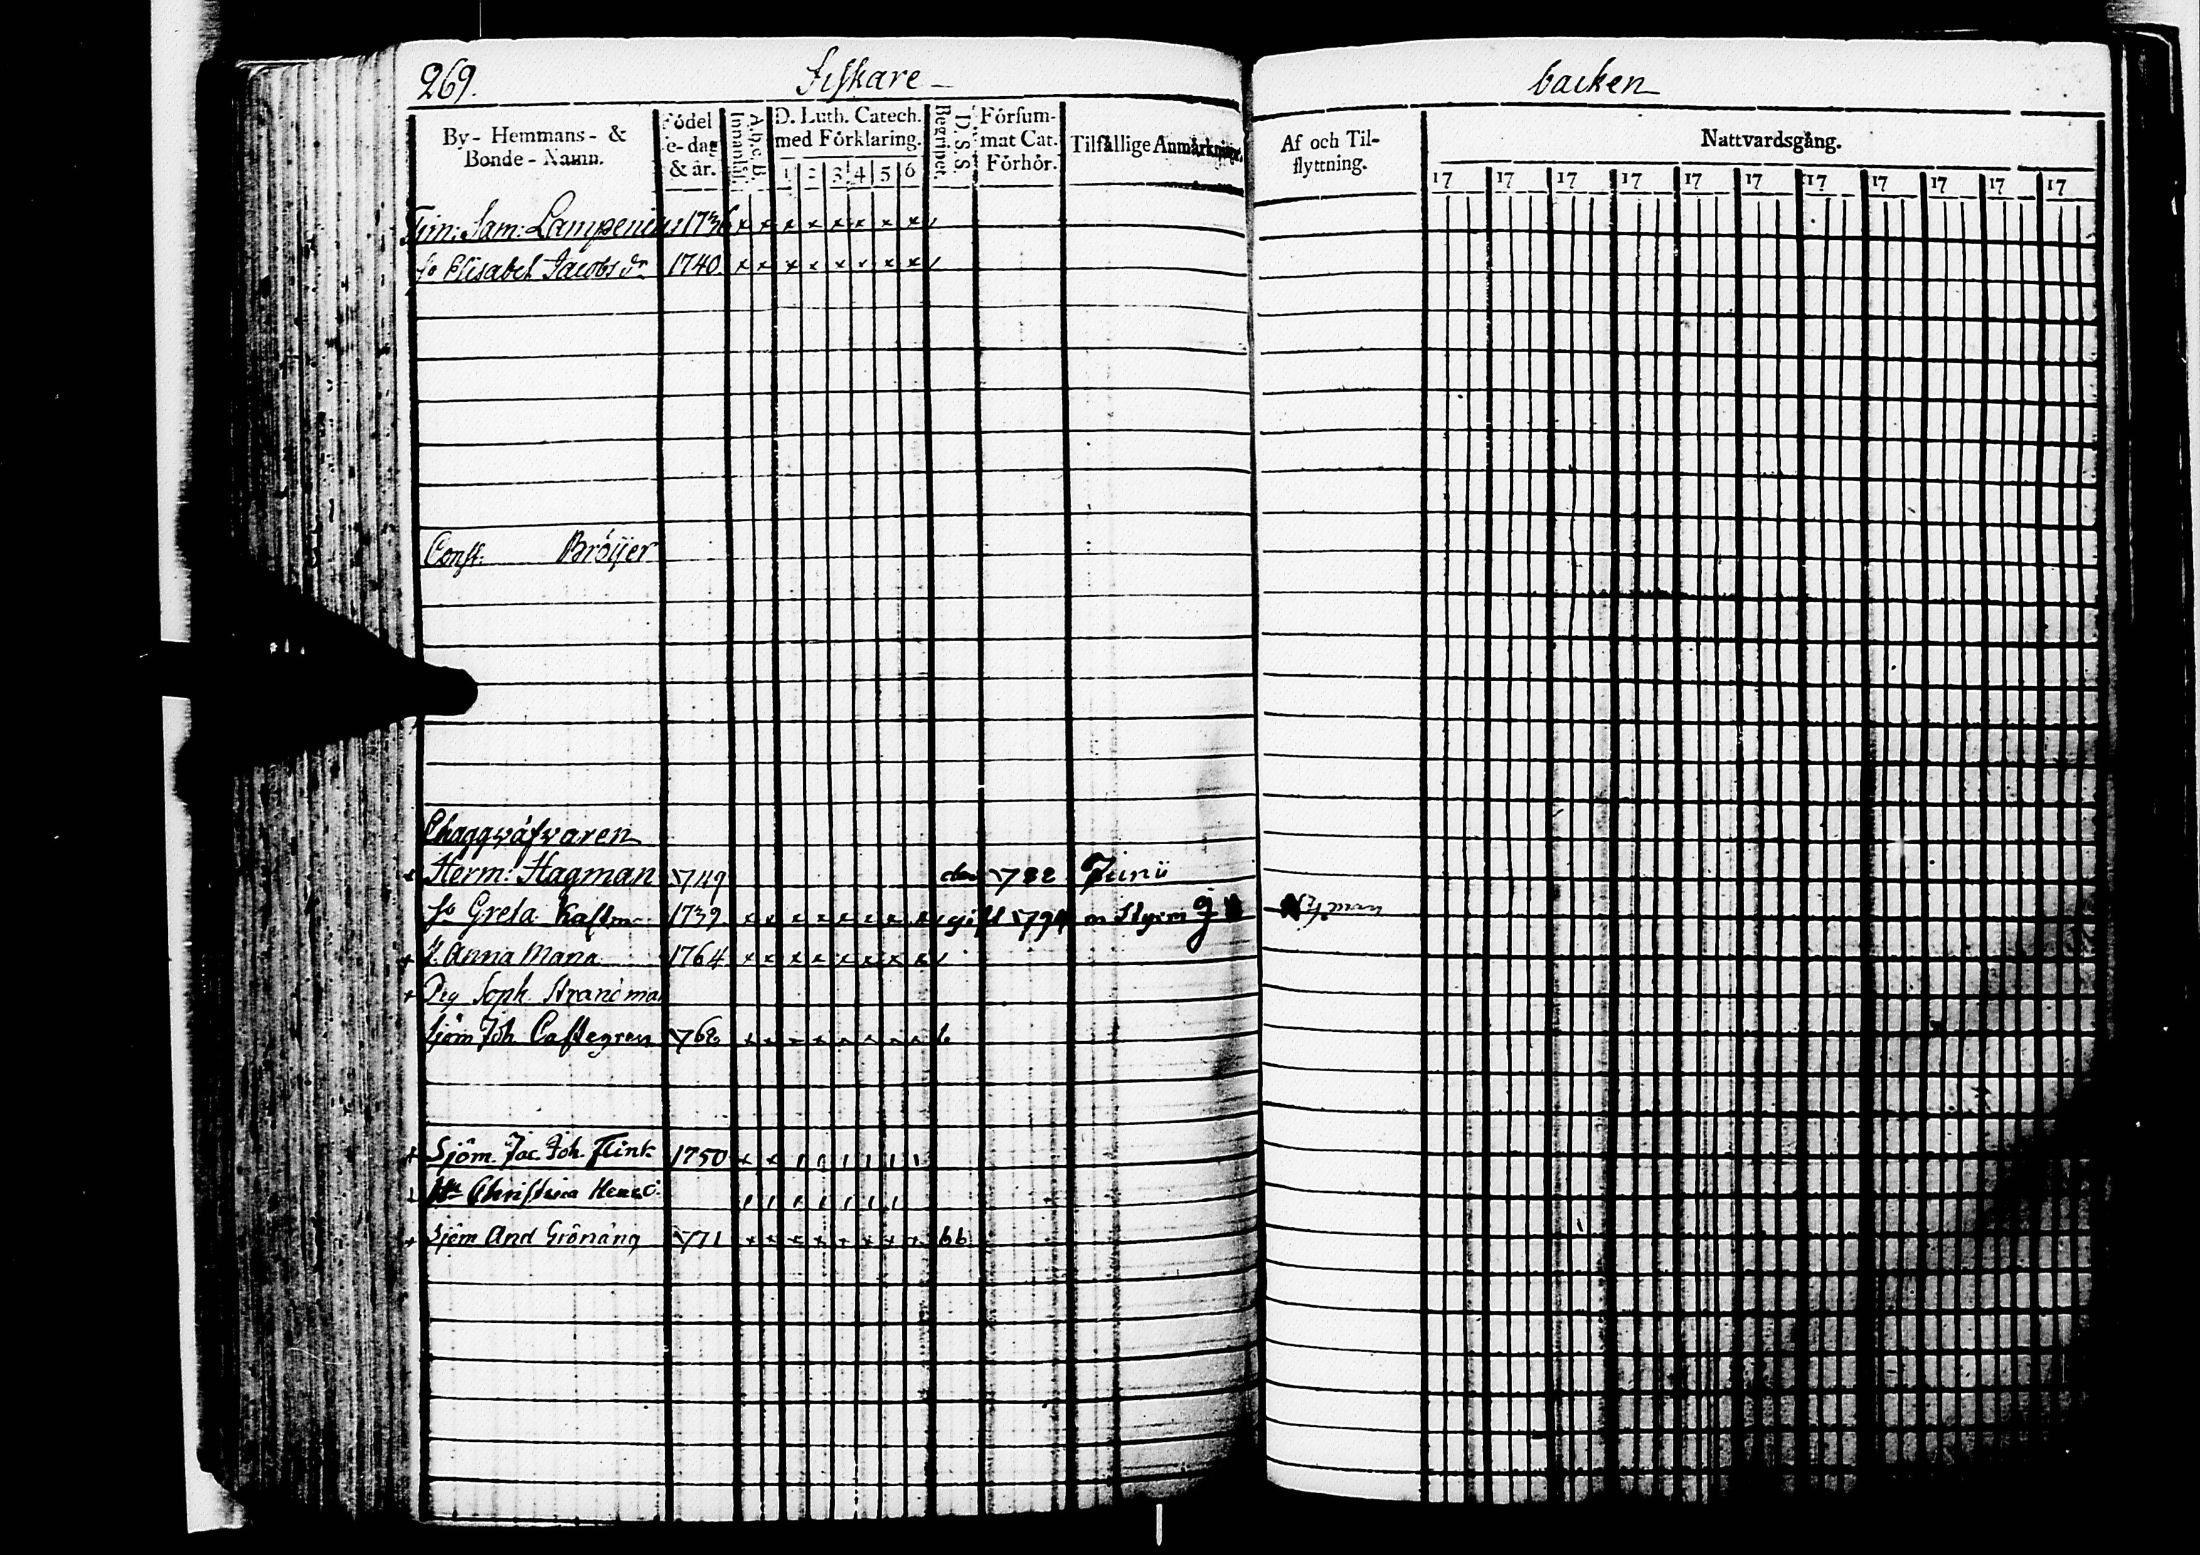 269. Fiskare - backen
By- Hemmans- & Bonde-Namn. Födelse-dag & år. A.b.c.B. Innantill. D. Luth. Catech. med Förklaring. 1 2 3 4 5 6 D.S.S. Begripet. Försummat Cat. Förhör. Tilfällige Anmärkningar. Af och Til-flyttning. Nattvardsgång.
17 17 17 17 17 17 17 17 17 17 17
Tim: Sam: Lampenius 1736 x x x x x x x x
Elisabet Jacobs dr 1740 x x x x x x x x
Const. Bröijer
Herm: Hagman 749 782 Junii
Greta 1739 x x x x x x x x gift 794 m Styrm
Anna Maria 1764 x x x x x x x x
Pig Soph. Strandman
Sjöm Joh Castegren 762
Sjöm. Jac Joh. Flink 1750 x x
Christina
Sjöm And Grönäng 771 x x x x x x x x bb